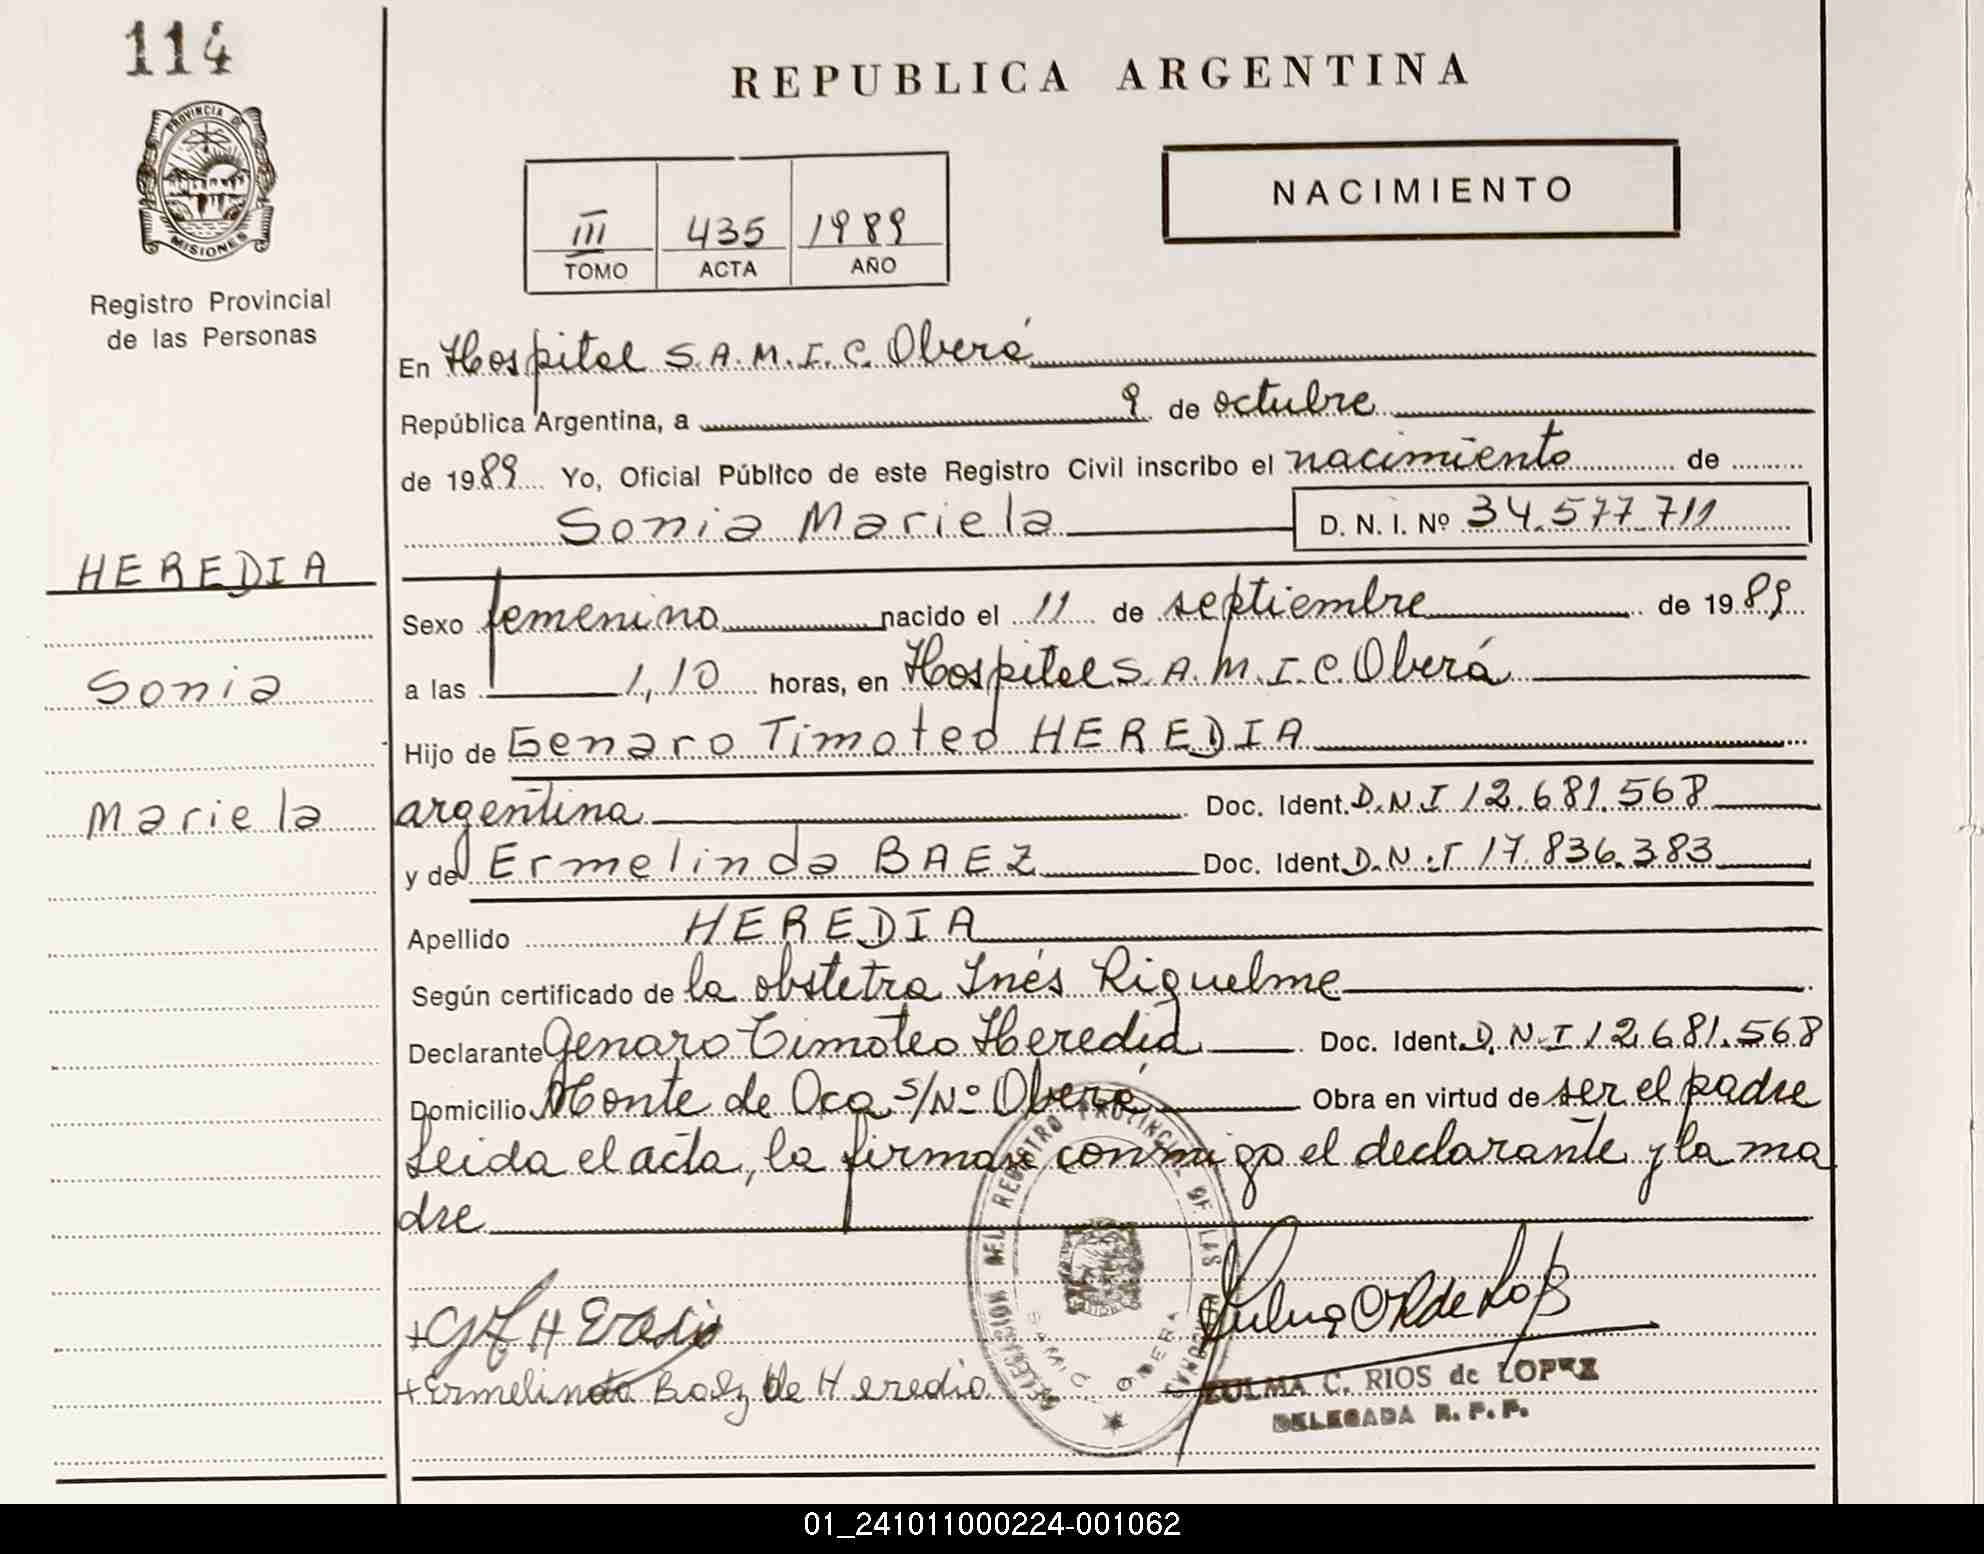 114
REPUBLICA ARGENTINA
PROVINCIA DE
MISIONES
Registro Provincial
de las Personas
NACIMIENTO
III 435 1989
TOMO ACTA AÑO
En Hospital S.A.M.I.C. Oberá
República Argentina, a 9 de octubre
de 1989 Yo, Oficial Público de este Registro Civil inscribo el nacimiento de
Sonia Mariela D. N. I. Nº 34.577.711
HEREDIA
Sonia
Mariela
Sexo femenino nacido el 11 de septiembre de 1989
a las 1,10 horas, en Hospital S.A.M.I.C. Oberá
Hijo de Genaro Timoteo HEREDIA
argentina Doc. Ident. D.N.I 12.681.568
y de Ermelinda BAEZ Doc. Ident. D.N.I 17.836.383
Apellido HEREDIA
Según certificado de la obstetra Inés Riquelme
Declarante Genaro Timoteo Heredia Doc. Ident. D.N.I 12.681.568
Domicilio Monte de Oca S/Nº Oberá Obra en virtud de ser el padre
Leida el acta, la firman conmigo el declarante y la ma
dre
DELEGACION DEL REGISTRO PROVINCIAL DE LAS PERSONAS
SAMIC OBERA
+ G T Heredia
+ Ermelinda Baez de Heredia
Zulma C R de Lopez
ZULMA C. RIOS de LOPEZ
DELEGADA R. P. P.
01_241011000224-001062